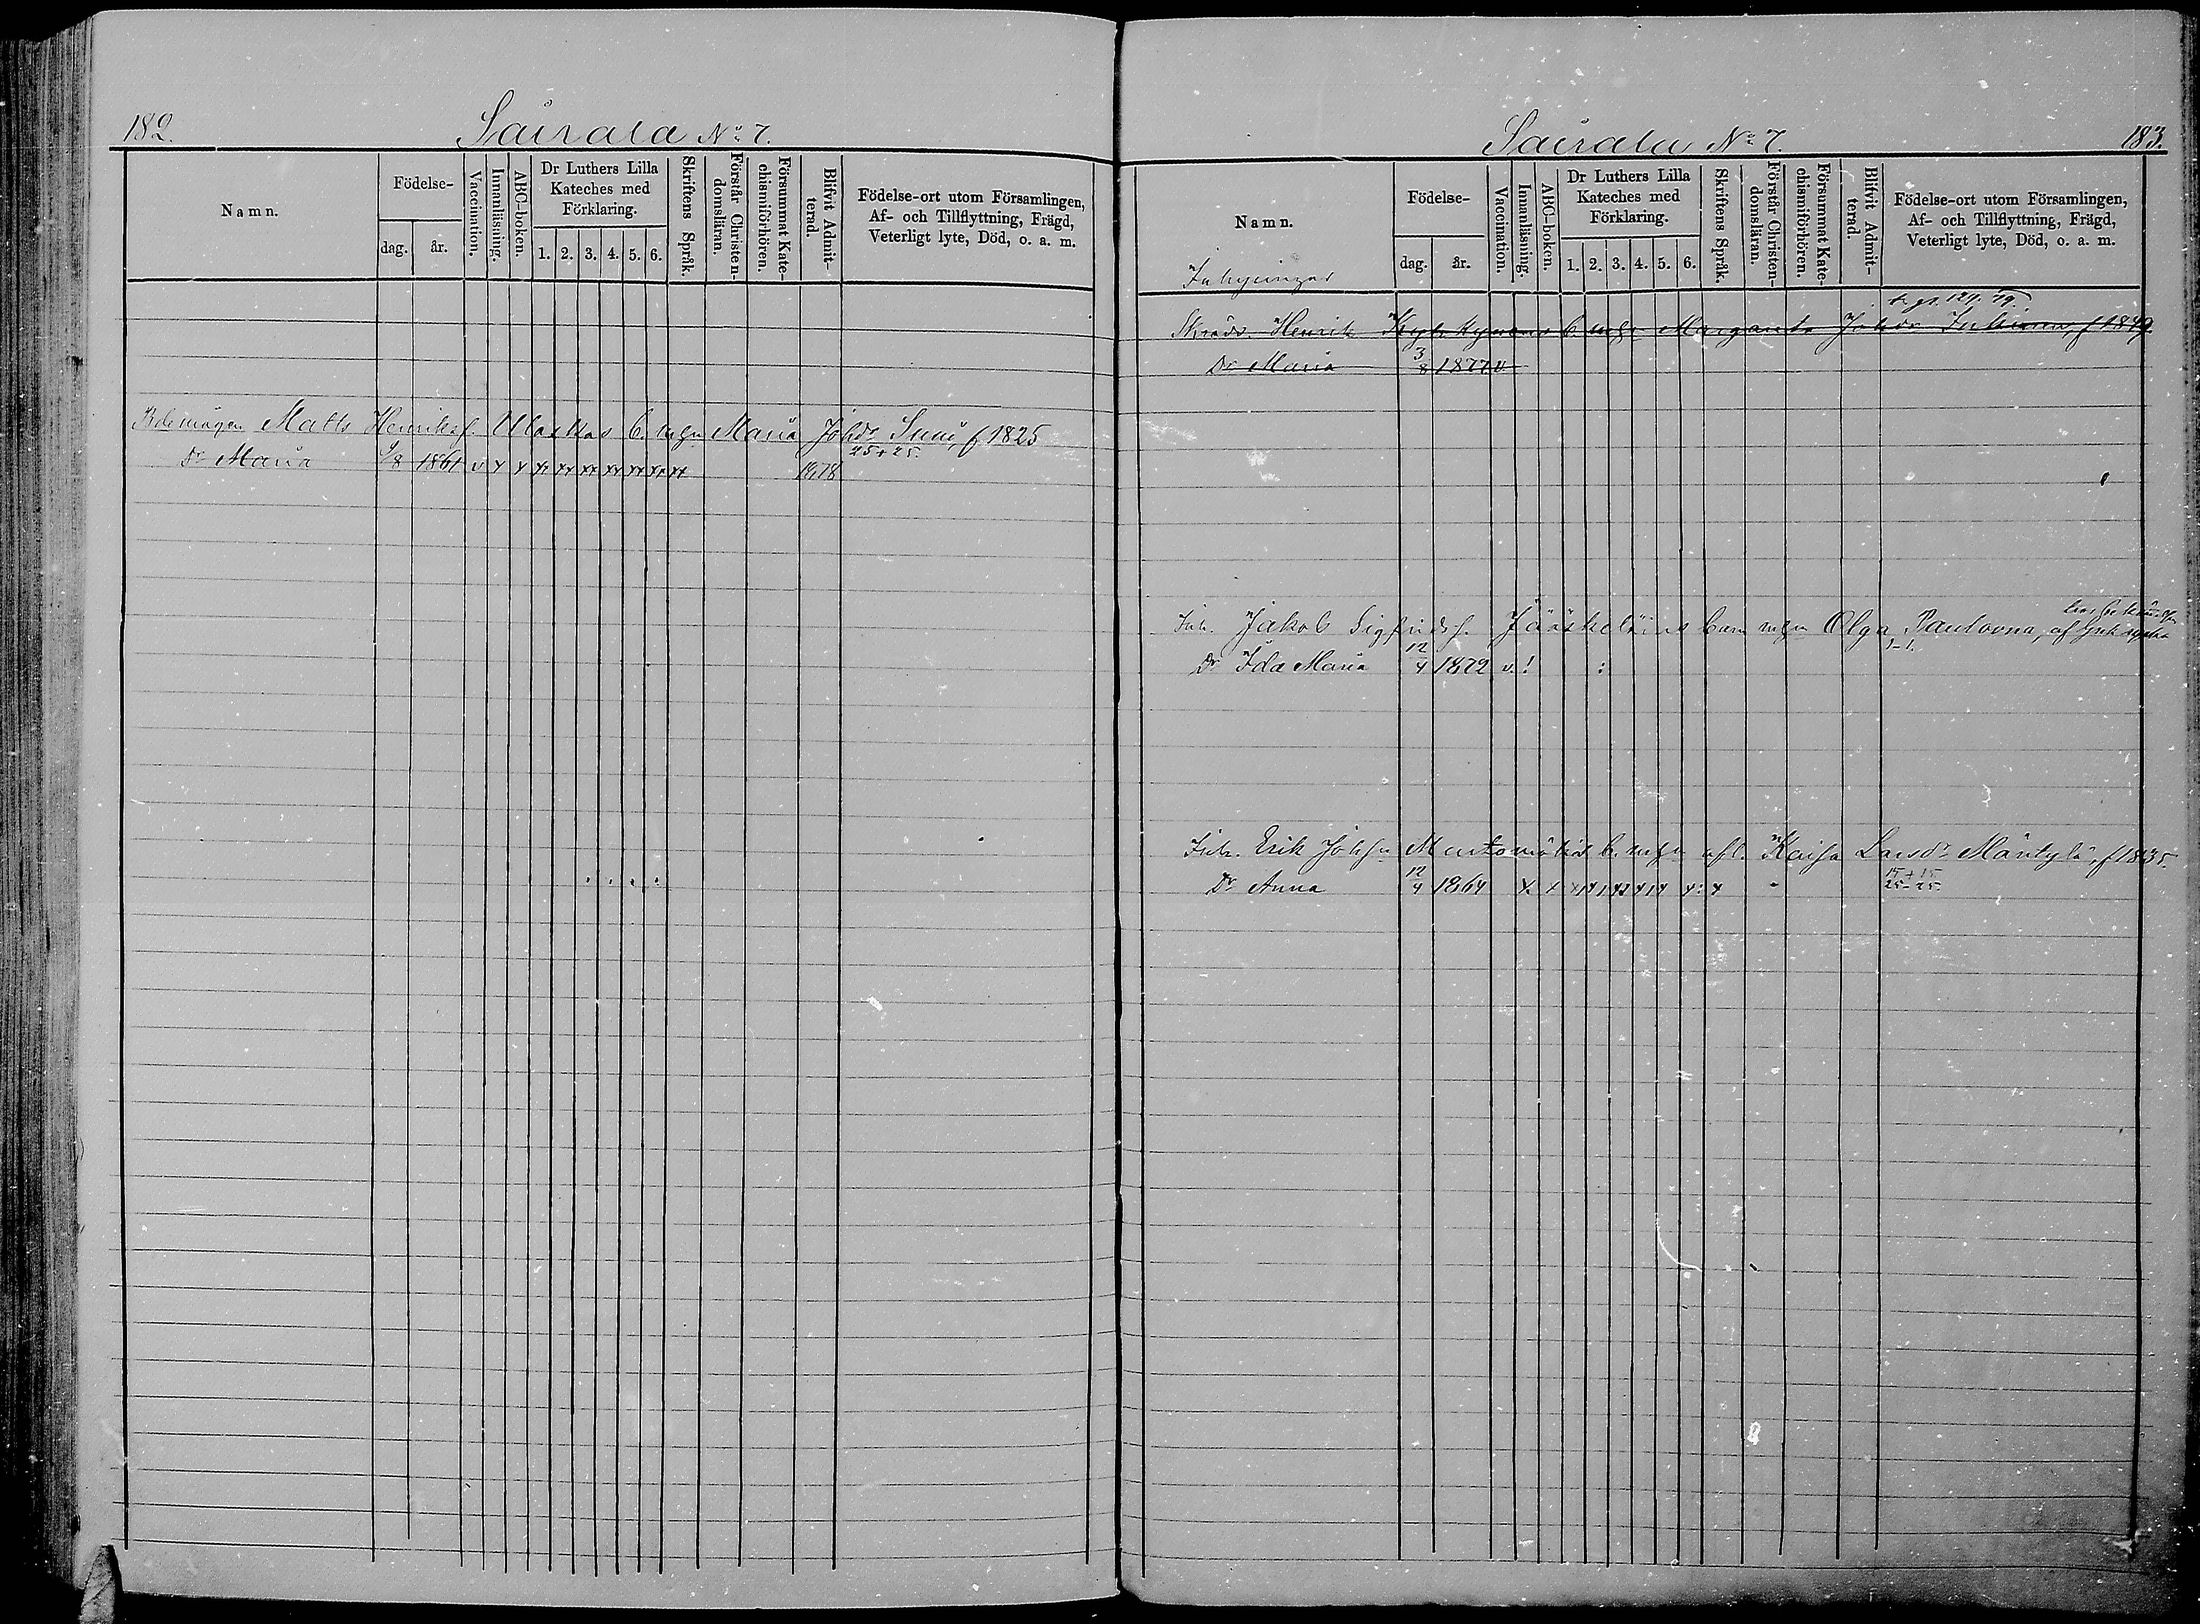 182.
Sairala No 7.
Namn.
Födelse-
dag. år.
Vaccination.
Innanläsning.
ABC-boken.
Dr Luthers Lilla
Kateches med
Förklaring.
1. 2. 3. 4. 5. 6.
Skriftens Språk.
Förstår Christen-
domsläran.
Försummat Kate-
chismiförhören.
Blifvit Admit-
terad.
Födelse-ort utom Församlingen,
Af- och Tillflyttning, Frägd,
Veterligt lyte, Död, o. a. m.
Matts Henriksf. Ulaskas b. mgn Maria Johdr Suni, f 1825
25+25.
Dr Maria 6/8 1861 v 1878
Sairala No 7.
183.
Namn.
Födelse-
dag. år.
Vaccination.
Innanläsning.
ABC-boken.
Dr Luthers Lilla
Kateches med
Förklaring.
1. 2. 3. 4. 5. 6.
Skriftens Språk.
Förstår Christen-
domsläran.
Försummat Kate-
chismiförhören.
Blifvit Admit-
terad.
Födelse-ort utom Församlingen,
Af- och Tillflyttning, Frägd,
Veterligt lyte, Död, o. a. m.
Inhysingar
Skrädd. Henrik b. mgn Margareta Johdr f 1849
Dr Maria 3/8 1877 v
Inh. Jakob Sigfridsf. Jääskeläins barn mgn Olga Paulovna, af
1-1.
Dr Ida Maria 12/4 1872 v. ! :
Inh. Erik Johsn b. mgn afl. Kaisa Larsdr Mäntylä, f 1835.
15+15
25-25.
Dr Anna 12/4 1864